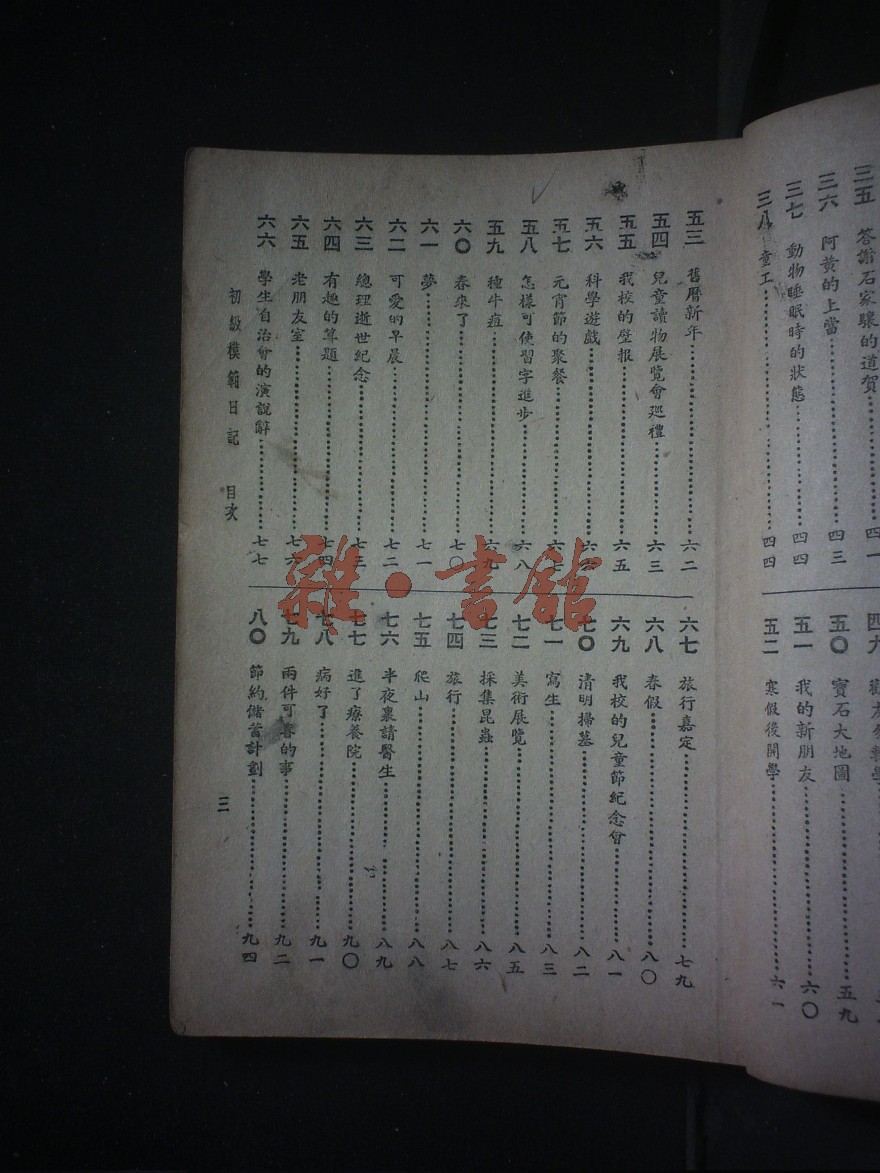 三五 答謝石家驥的道賀 四一
三六 阿黃的上當 四三
三七 動物睡眠時的狀態 四四
三八 童工 四四
五〇 寶石大地圖 五九
五一 我的新朋友 六〇
五二 寒假後開學 六一
五三 舊曆新年 六二
五四 兒童讀物展覽會巡禮 六三
五五 我校的壁报 六五
五六 科學遊戲
五七 元宵節的聚餐 六七
五八 怎樣可使習字進步 六八
五九 種牛痘 六九
六〇 春來了 七〇
六一 夢 七一
六二 可愛的早晨 七二
六三 總理逝世紀念 七三
六四 有趣的算題 七四
六五 老朋友室 七六
六六 學生自治會的演說辭 七七
六七 旅行嘉定 七九
六八 春假 八〇
六九 我校的兒童節紀念會 八一
七〇 清明掃墓 八二
七一 寫生 八三
七二 美術展覽 八五
七三 採集昆蟲 八六
七四 旅行 八七
七五 爬山 八八
七六 半夜裏請醫生 八九
七七 進了療養院 九〇
七八 病好了 九一
七九 兩件可喜的事 九二
八〇 節約儲蓄計劃 九四
初級模範日記 目次 三
雜·書館